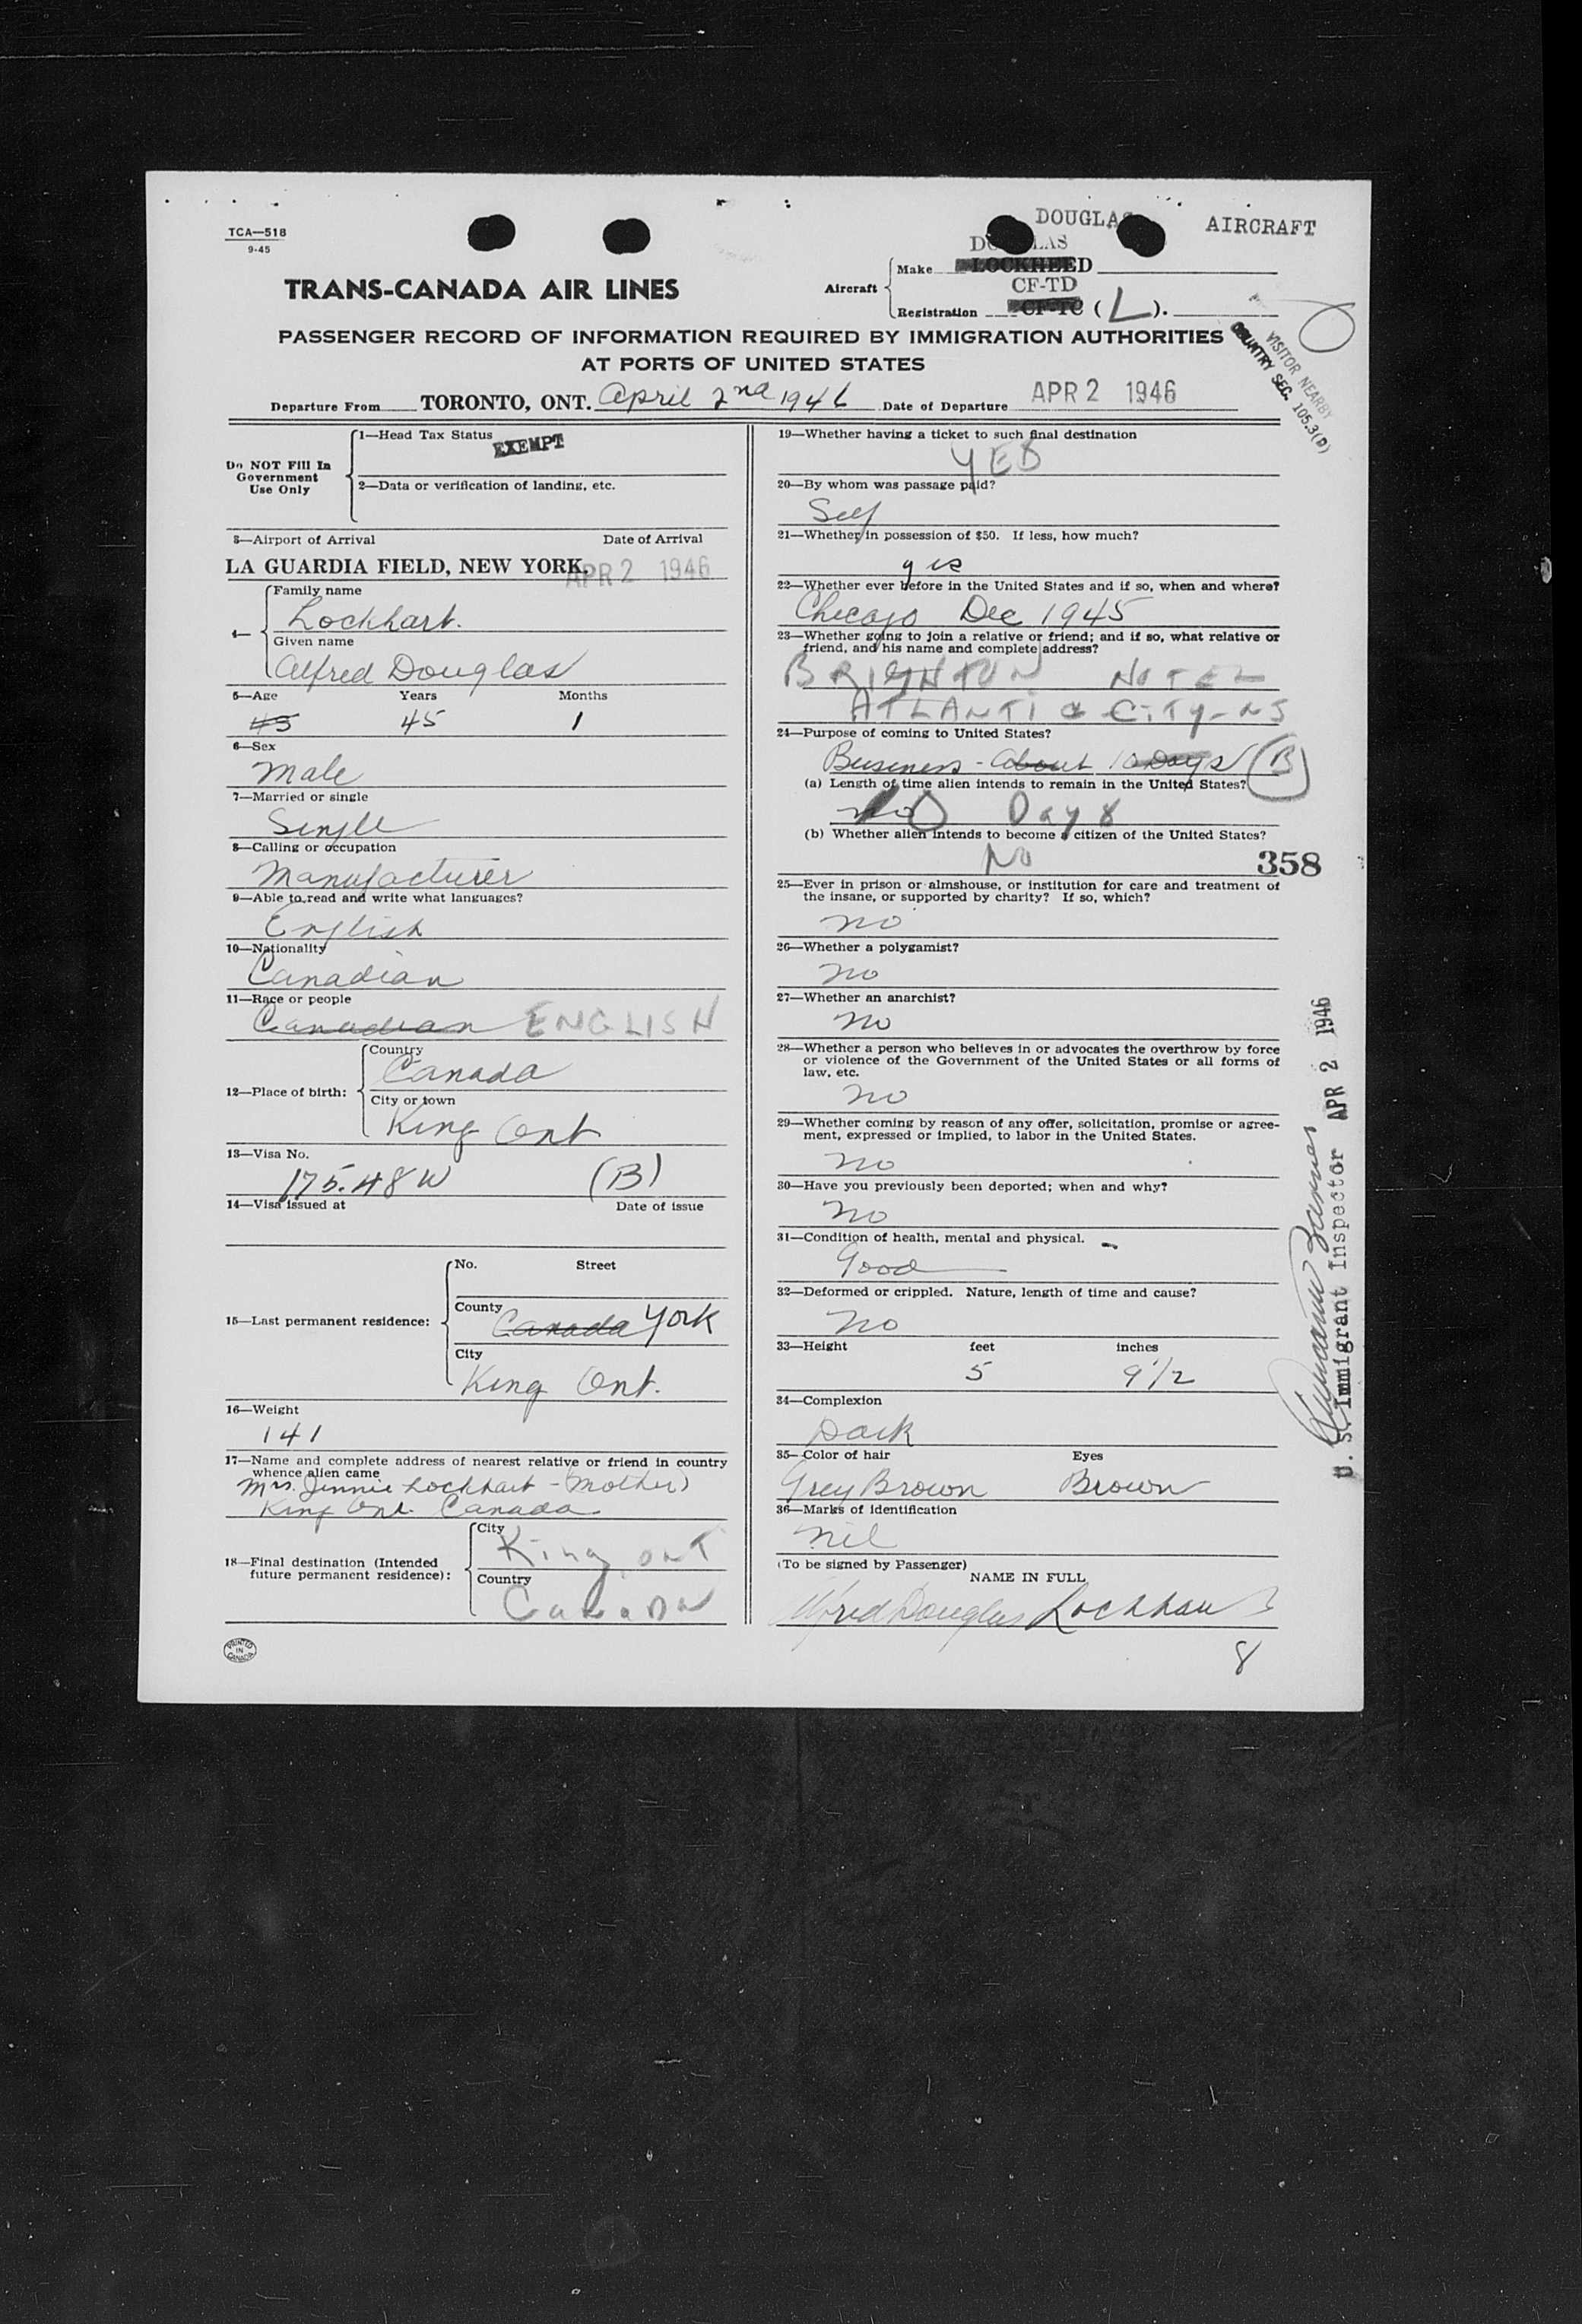 TCA—518
9-45
DOUGLAS AIRCRAFT
DOUGLAS
TRANS-CANADA AIR LINES
Aircraft
Make LOCKHEED
CF-TD
Registration CF-TC (L).
PASSENGER RECORD OF INFORMATION REQUIRED BY IMMIGRATION AUTHORITIES
AT PORTS OF UNITED STATES
VISITOR NEARBY
COUNTRY SEC. 105.3(D)
Departure From TORONTO, ONT. April 2nd 1946 Date of Departure APR 2 1946
Do NOT Fill In
Government
Use Only
1—Head Tax Status
EXEMPT
2—Data or verification of landing, etc.
3—Airport of Arrival Date of Arrival
LA GUARDIA FIELD, NEW YORK. APR 2 1946
4—
Family name
Lockhart.
Given name
Alfred Douglas
5—Age Years Months
45 45 1
6—Sex
Male
7—Married or single
Single
8—Calling or occupation
Manufacturer
9—Able to read and write what languages?
English
10—Nationality
Canadian
11—Race or people
Canadian ENGLISH
12—Place of birth:
Country
Canada
City or town
King Ont
13—Visa No.
175.48W (B)
14—Visa issued at Date of issue
15—Last permanent residence:
No. Street
County
Canada York
City
King Ont.
16—Weight
141
17—Name and complete address of nearest relative or friend in country
whence alien came
Mrs. Jennie Lockhart - (Mother)
King Ont. Canada
18—Final destination (Intended
future permanent residence):
City
King, ont
Country
Canada
PRINTED
IN
CANADA
19—Whether having a ticket to such final destination
YES
20—By whom was passage paid?
Self
21—Whether in possession of $50. If less, how much?
yes
22—Whether ever before in the United States and if so, when and where?
Chicago Dec 1945
23—Whether going to join a relative or friend; and if so, what relative or
friend, and his name and complete address?
BRIGHTON HOTEL
ATLANTIC CITY-NJ
24—Purpose of coming to United States?
Business - About 10 Days (B)
(a) Length of time alien intends to remain in the United States?
Days
(b) Whether alien intends to become a citizen of the United States?
No
358
25—Ever in prison or almshouse, or institution for care and treatment of
the insane, or supported by charity? If so, which?
no
26—Whether a polygamist?
no
27—Whether an anarchist?
no
28—Whether a person who believes in or advocates the overthrow by force
or violence of the Government of the United States or all forms of
law, etc.
no
29—Whether coming by reason of any offer, solicitation, promise or agree-
ment, expressed or implied, to labor in the United States.
no
30—Have you previously been deported; when and why?
no
31—Condition of health, mental and physical.
Good
32—Deformed or crippled. Nature, length of time and cause?
no
33—Height feet inches
5 9 1/2
34—Complexion
Dark
35—Color of hair Eyes
Grey Brown Brown
36—Marks of identification
nil
(To be signed by Passenger)
NAME IN FULL
Alfred Douglas Lockhart
8
U. S. Immigrant Inspector APR 2 1946